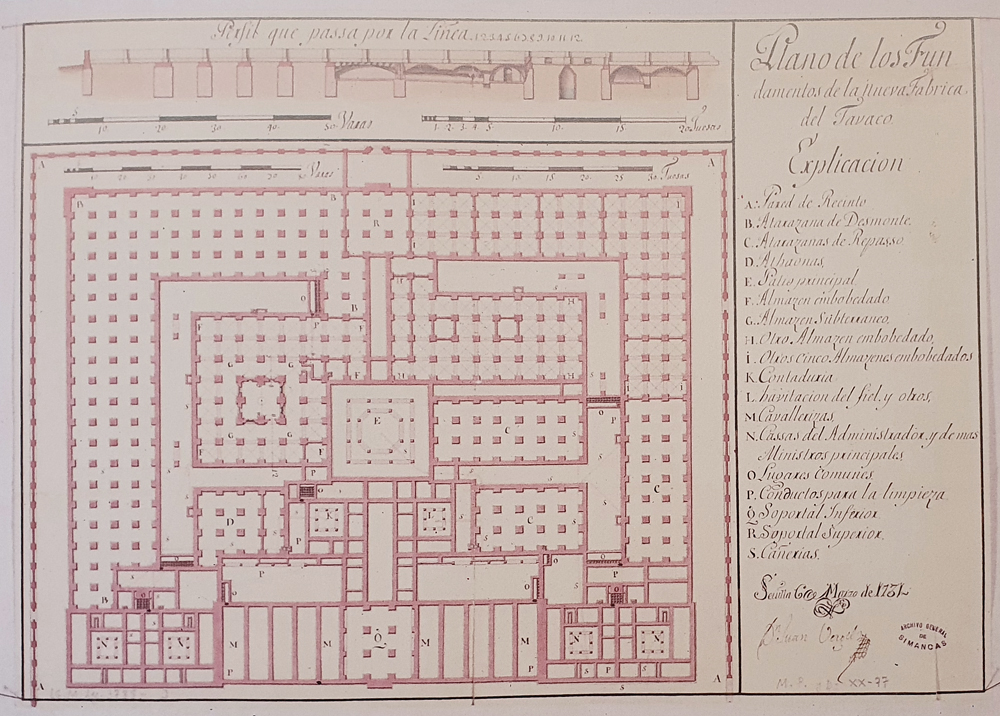 Perfil que passa por la Linea 1 2 3 4 5 6 7 8 9 10 11 12
5 10. 20 30 40. 50 Varas
1. 2. 3. 4. 5 10 15 20 Tuesas
10 20 30 50 Varas
5 10. 15. 20. 25. 30. Tuesas
Plano de los Fun
damentos de la Nueva Fabrica
del Tavaco.
Explicacion
A. Pared de Recinto
B. Atarazana de Desmonte.
C. Atarazanas de Repasso,
D. Athaonas,
E. Patio principal
F. Almazen embobedado
G. Almazen Subterraneo,
H. Otro Almazen embobedado,
I. Otros Cinco Almazenes embobedados
K. Contaduria
L. havitacion del fiel, y otros,
M. Cavallerizas,
N. Cassas del Administradór, y de mas
Ministros principales
O. Lugares Comunes,
P. Conductos para la limpieza,
Q. Soportál Inferior
R. Soportal Superior,
S. Cañerias.
Marzo de 1731
Juan
ARCHIVO GENERAL
DE
SIMANCAS
XX-77
A A
B B R I I
O P B
F F H H
G G
E C
G G F P
O P
D K L C C
P
B O P P O
N N M M Q M M N N
A P P A